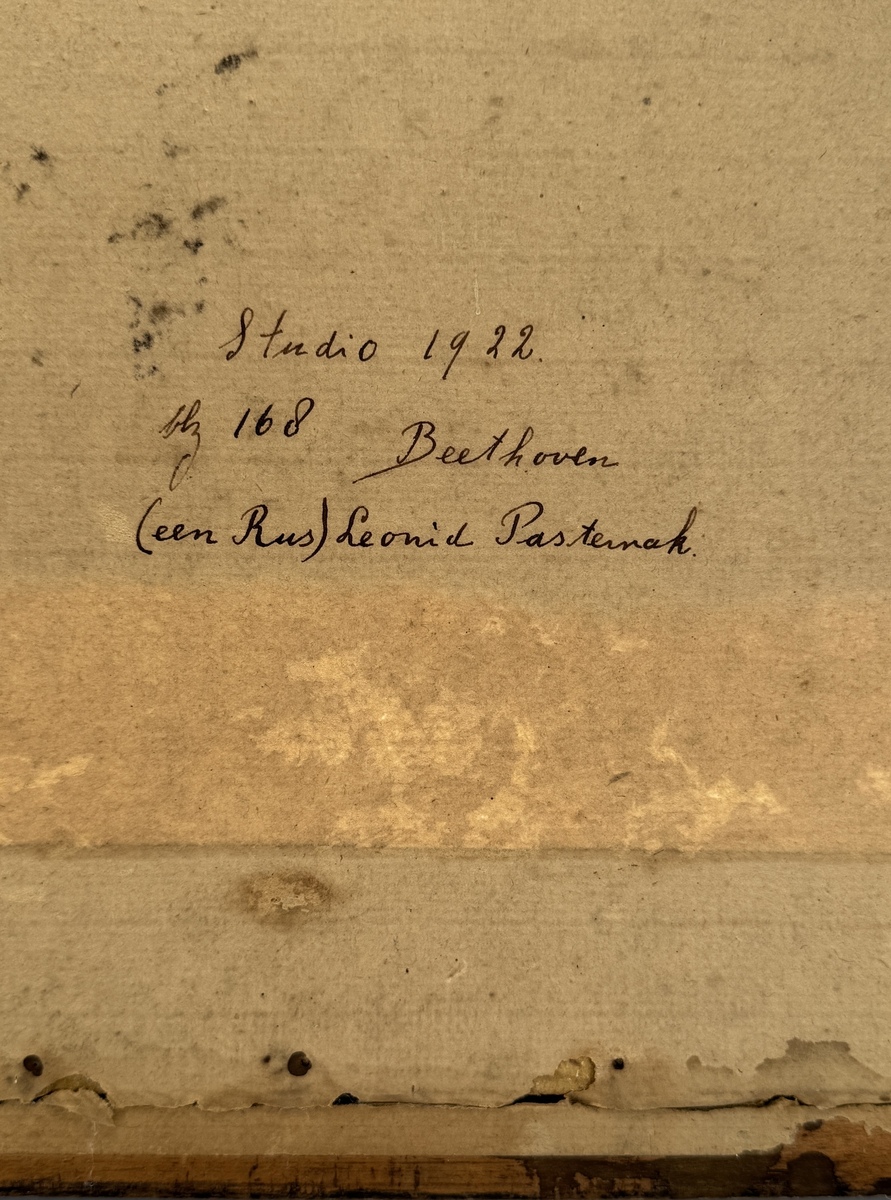 Studio 1922.
blz 168
Beethoven
(een Rus) Leonid Pasternak.